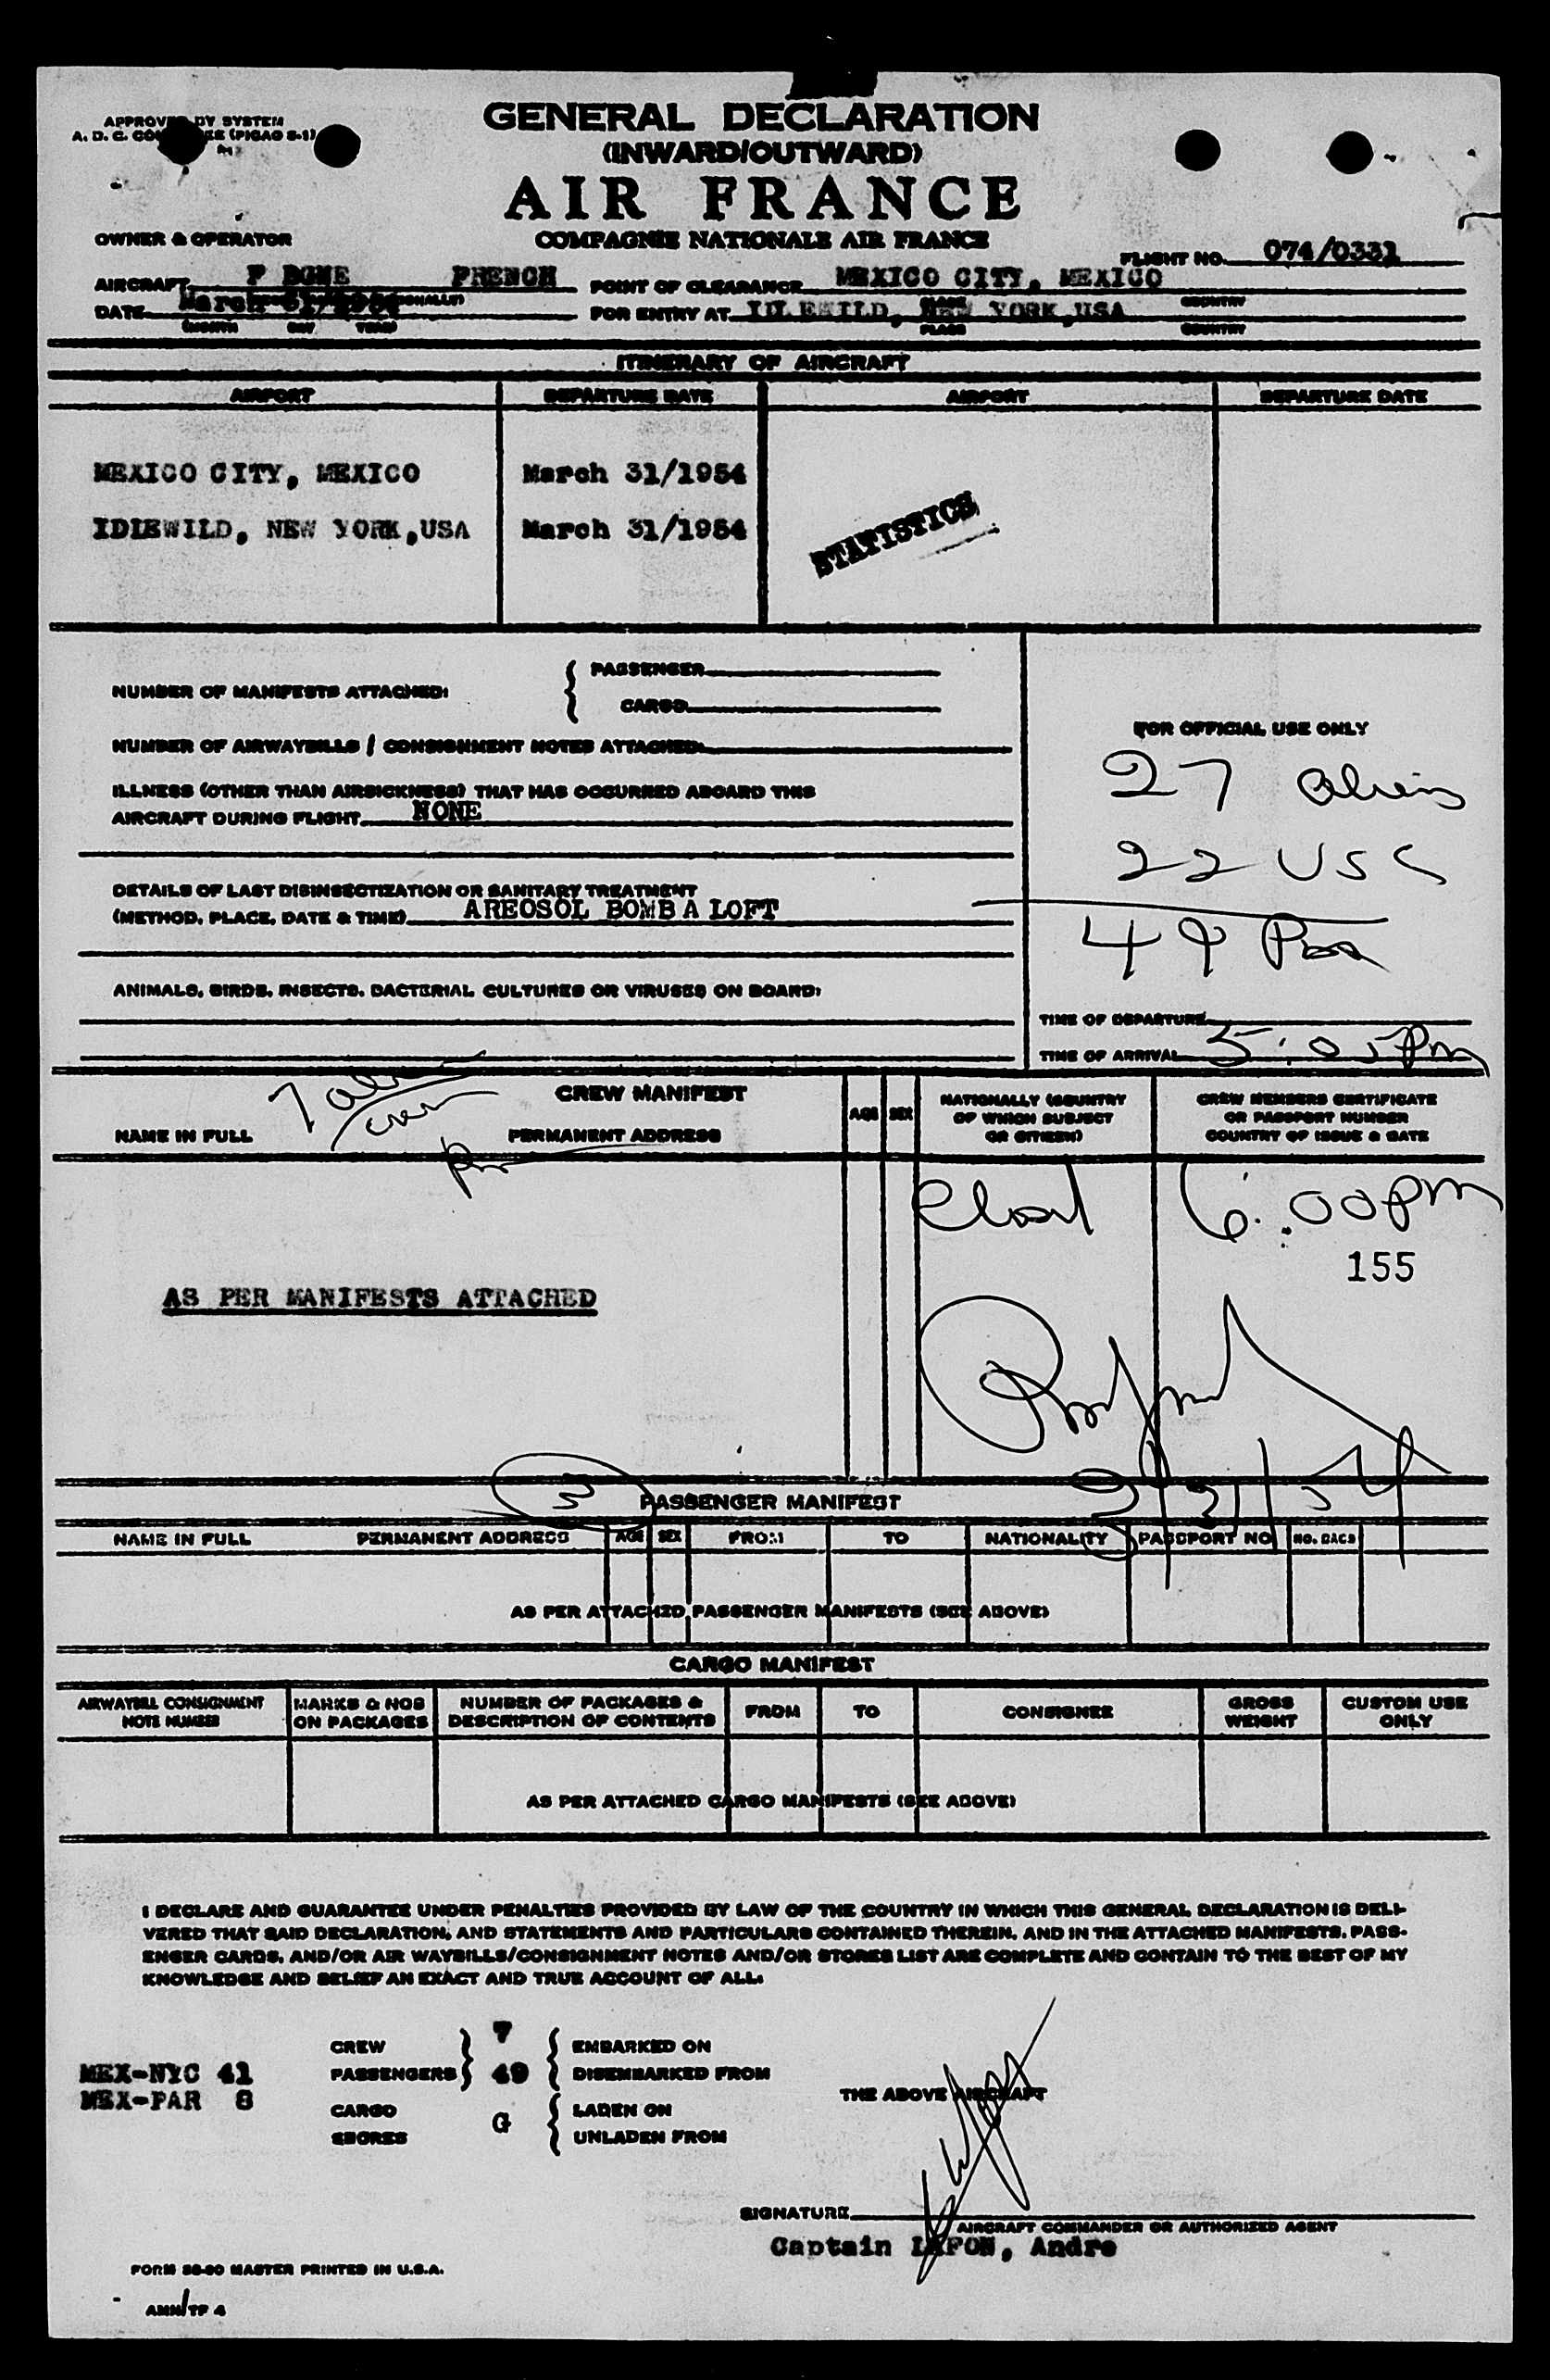 APPROVED BY SYSTEM
GENERAL DECLARATION
(INWARD/OUTWARD)
AIR FRANCE
COMPAGNIE NATIONALE AIR FRANCE
OWNER & OPERATOR
FLIGHT NO. 074/0331
AIRCRAFT FRENCH POINT OF CLEARANCE MEXICO CITY, MEXICO
PLACE COUNTRY
DATE March FOR ENTRY AT IDLEWILD, NEW YORK,USA
(MONTH DAY YEAR) PLACE COUNTRY
ITINERARY OF AIRCRAFT
AIRPORT DEPARTURE DATE AIRPORT DEPARTURE DATE
MEXICO CITY, MEXICO March 31/1954
STATISTICS
IDLEWILD, NEW YORK,USA March 31/1954
NUMBER OF MANIFESTS ATTACHED:
PASSENGER
CARGO
FOR OFFICIAL USE ONLY
NUMBER OF AIRWAYBILLS / CONSIGNMENT NOTES ATTACHED:
27 aliens
ILLNESS (OTHER THAN AIRSICKNESS) THAT HAS OCCURRED ABOARD THIS
AIRCRAFT DURING FLIGHT NONE
22 USC
DETAILS OF LAST DISINSECTIZATION OR SANITARY TREATMENT
(METHOD, PLACE, DATE & TIME) AREOSOL BOMB A LOFT
49 Pax
ANIMALS, BIRDS, INSECTS, BACTERIAL CULTURES OR VIRUSES ON BOARD:
TIME OF DEPARTURE
TIME OF ARRIVAL 5:05Pm
7
crew
CREW MANIFEST
NAME IN FULL PERMANENT ADDRESS AGE SEX NATIONALLY (COUNTRY
OF WHICH SUBJECT
OR CITIZEN) CREW MEMBERS CERTIFICATE
OR PASSPORT NUMBER
COUNTRY OF ISSUE & DATE
6:00pm
155
AS PER MANIFESTS ATTACHED
3/31/54
PASSENGER MANIFEST
NAME IN FULL PERMANENT ADDRESS AGE SEX FROM TO NATIONALITY PASSPORT NO. NO. BAGS
AS PER ATTACHED PASSENGER MANIFESTS (SEE ABOVE)
CARGO MANIFEST
AIRWAYBILL CONSIGNMENT
NOTE NUMBER MARKS & NOS
ON PACKAGES NUMBER OF PACKAGES &
DESCRIPTION OF CONTENTS FROM TO CONSIGNEE GROSS
WEIGHT CUSTOM USE
ONLY
AS PER ATTACHED CARGO MANIFESTS (SEE ABOVE)
I DECLARE AND GUARANTEE UNDER PENALTIES PROVIDED BY LAW OF THE COUNTRY IN WHICH THIS GENERAL DECLARATION IS DELI-
VERED THAT SAID DECLARATION, AND STATEMENTS AND PARTICULARS CONTAINED THEREIN, AND IN THE ATTACHED MANIFESTS, PASS-
ENGER CARDS, AND/OR AIR WAYBILLS/CONSIGNMENT NOTES AND/OR STORES LIST ARE COMPLETE AND CONTAIN TO THE BEST OF MY
KNOWLEDGE AND BELIEF AN EXACT AND TRUE ACCOUNT OF ALL:
CREW 7 EMBARKED ON
MEX-NYC 41 PASSENGERS 49 DISEMBARKED FROM
THE ABOVE AIRCRAFT
MEX-PAR 8
CARGO G LADEN ON
STORES UNLADEN FROM
SIGNATURE
AIRCRAFT COMMANDER OR AUTHORIZED AGENT
Captain LAFON, Andre
FORM 58-90 MASTER PRINTED IN U.S.A.